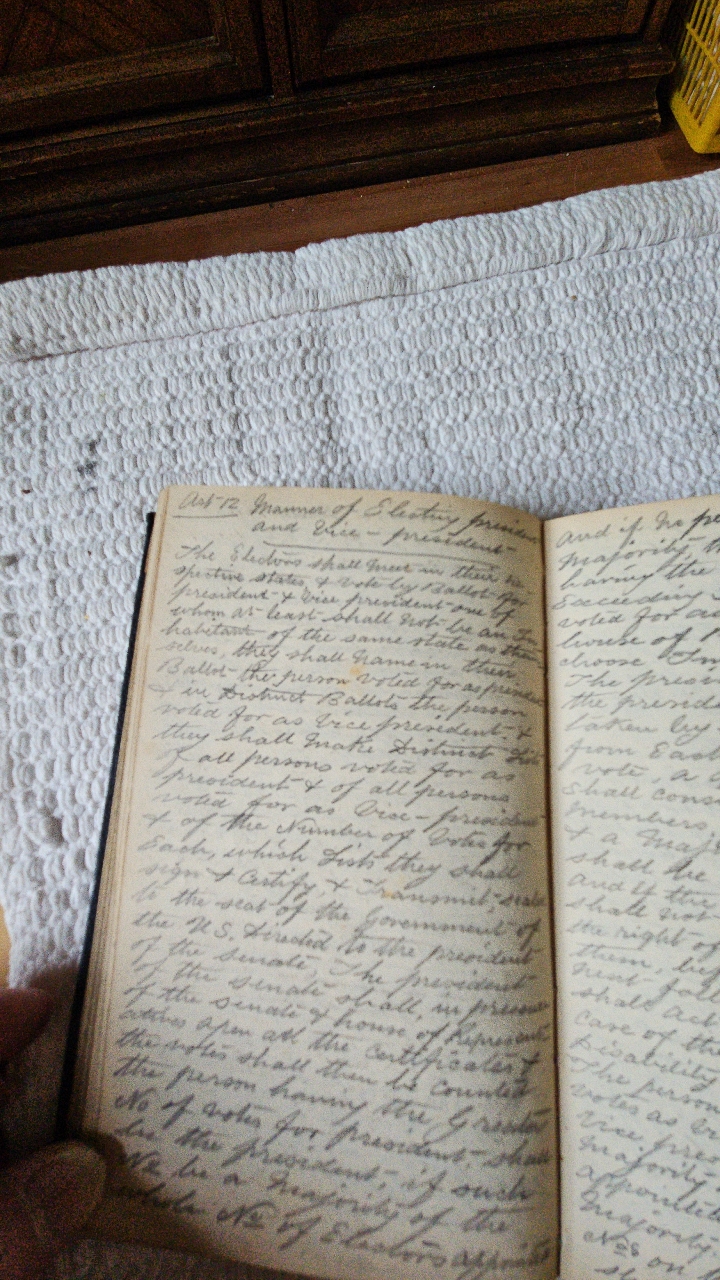 Art 12 Manner of Electing presiden
and Vice - president -
The Electors shall meet in their re-
spective states, & vote by Ballot for
president & Vice president one of
whom at least shall not be an In-
habitant of the same state as them-
selves, they shall name in their
Ballot the person voted for as president
& in Distinct Ballots the person
voted for as Vice president - &
they shall make Distinct Lists
of all persons voted for as
president & of all persons
voted for as Vice - president
& of the Number of Votes for
Each, which Lists they shall
sign & Certify, & Transmit, sealed
to the seat of the Government of
the U.S. Directed to the president
of the senate, The president
of the senate shall, in presence
of the senate & house of Represent-
atives open all the certificates &
the votes shall then be counted
the person having the Greatest
No of votes for president, shall
be the president, if such
No be a majority of the
whole No of Electors appointed
and if no pe
majority, th
having the
Exceeding
voted for as
house of R
choose Im
The presi
the preside
taken by
from Each
vote, a
shall cons
members
& a Majo
shall be
and if the
shall not
the right of
them, bef
next foll
shall act
case of the
Disability
The person
votes as Vi
Vice pres
Majority
appointed
Majority,
Nos on